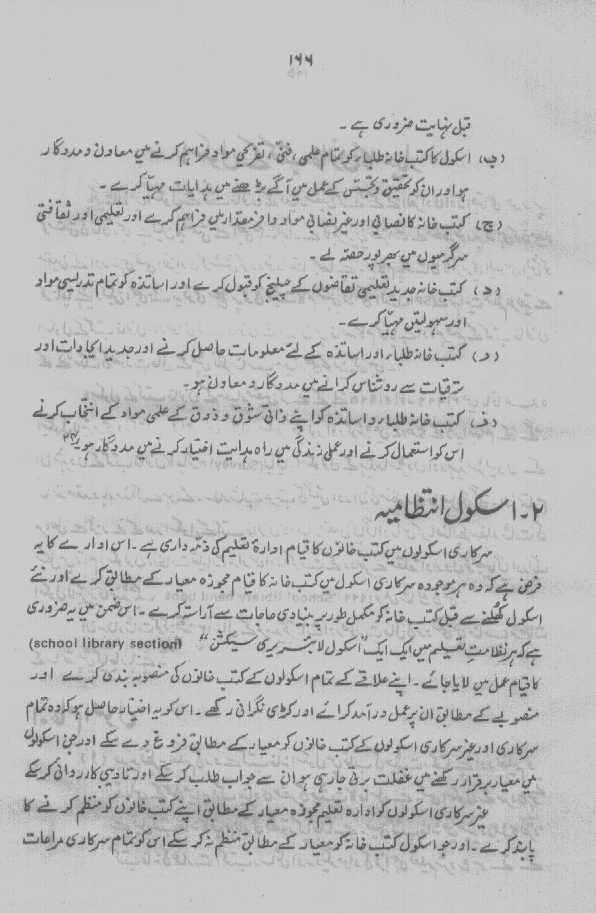 ۱۶۶
قبل نہایت ضروری ہے ۔
(ب) اسکول کا کتب خانہ طلباء کو تمام علمی، فنی، تفریحی مواد فراہم کرنے میں معاون و مددگار
ہو اور ان کو تحقیق و تجسس کے عمل میں آگے بڑھنے میں ہدایات مہیا کرے ۔
(ج) کتب خانہ کا نصابی اور غیر نصابی مواد وافر مقدار میں فراہم کرے اور تعلیمی اور ثقافتی
سرگرمیوں میں بھرپور حصہ لے ۔
(د) کتب خانہ جدید تعلیمی تقاضوں کے چیلنج کو قبول کرے اور اساتذہ کو تمام تدریسی مواد
اور سہولتیں مہیا کرے ۔
(ر) کتب خانہ طلباء اور اساتذہ کے لئے معلومات حاصل کرنے اور جدید ایجادات اور
ترقیات سے روشناس کرانے میں مددگار و معاون ہو ۔
(ز) کتب خانہ طلباء و اساتذہ کو اپنے ذاتی شوق و ذوق کے علمی مواد کے انتخاب کرنے
اس کو استعمال کرنے اور عملی زندگی میں راہ ہدایت اختیار کرنے میں مددگار ہو ۔
۲۔ اسکول انتظامیہ
سرکاری اسکولوں میں کتب خانوں کا قیام ادارۂ تعلیم کی ذمہ داری ہے ۔ اس ادارے کا یہ
فرض ہے کہ وہ ہر موجودہ سرکاری اسکول میں کتب خانہ کا قیام مجوزہ معیار کے مطابق کرے اور نئے
اسکول کھلنے سے قبل کتب خانہ کو مکمل طور پر بنیادی حاجات سے آراستہ کرے ۔ اس ضمن میں یہ ضروری
ہے کہ ہر نظامتِ تعلیم میں ایک ایک "اسکول لائبریری سیکشن" (school library section)
کا قیام عمل میں لایا جائے ۔ اپنے علاقے کے تمام اسکولوں کے کتب خانوں کی منصوبہ بندی کرے اور
منصوبے کے مطابق ان پر عمل درآمد کرائے اور کڑی نگرانی رکھے ۔ اس کو یہ اختیار حاصل ہو کہ وہ تمام
سرکاری اور غیر سرکاری اسکولوں کے کتب خانوں کو معیار کے مطابق فروغ دے سکے اور جن اسکولوں
میں معیار برقرار رکھنے میں غفلت برتی جا رہی ہو ان سے جواب طلب کر سکے اور تادیبی کارروائی کر سکے
غیر سرکاری اسکولوں کو ادارہ تعلیم مجوزہ معیار کے مطابق اپنے کتب خانوں کو منظم کرنے کا
پابند کرے ۔ اور جو اسکول کتب خانہ کو معیار کے مطابق منظم نہ کر سکے اس کو تمام سرکاری مراعات